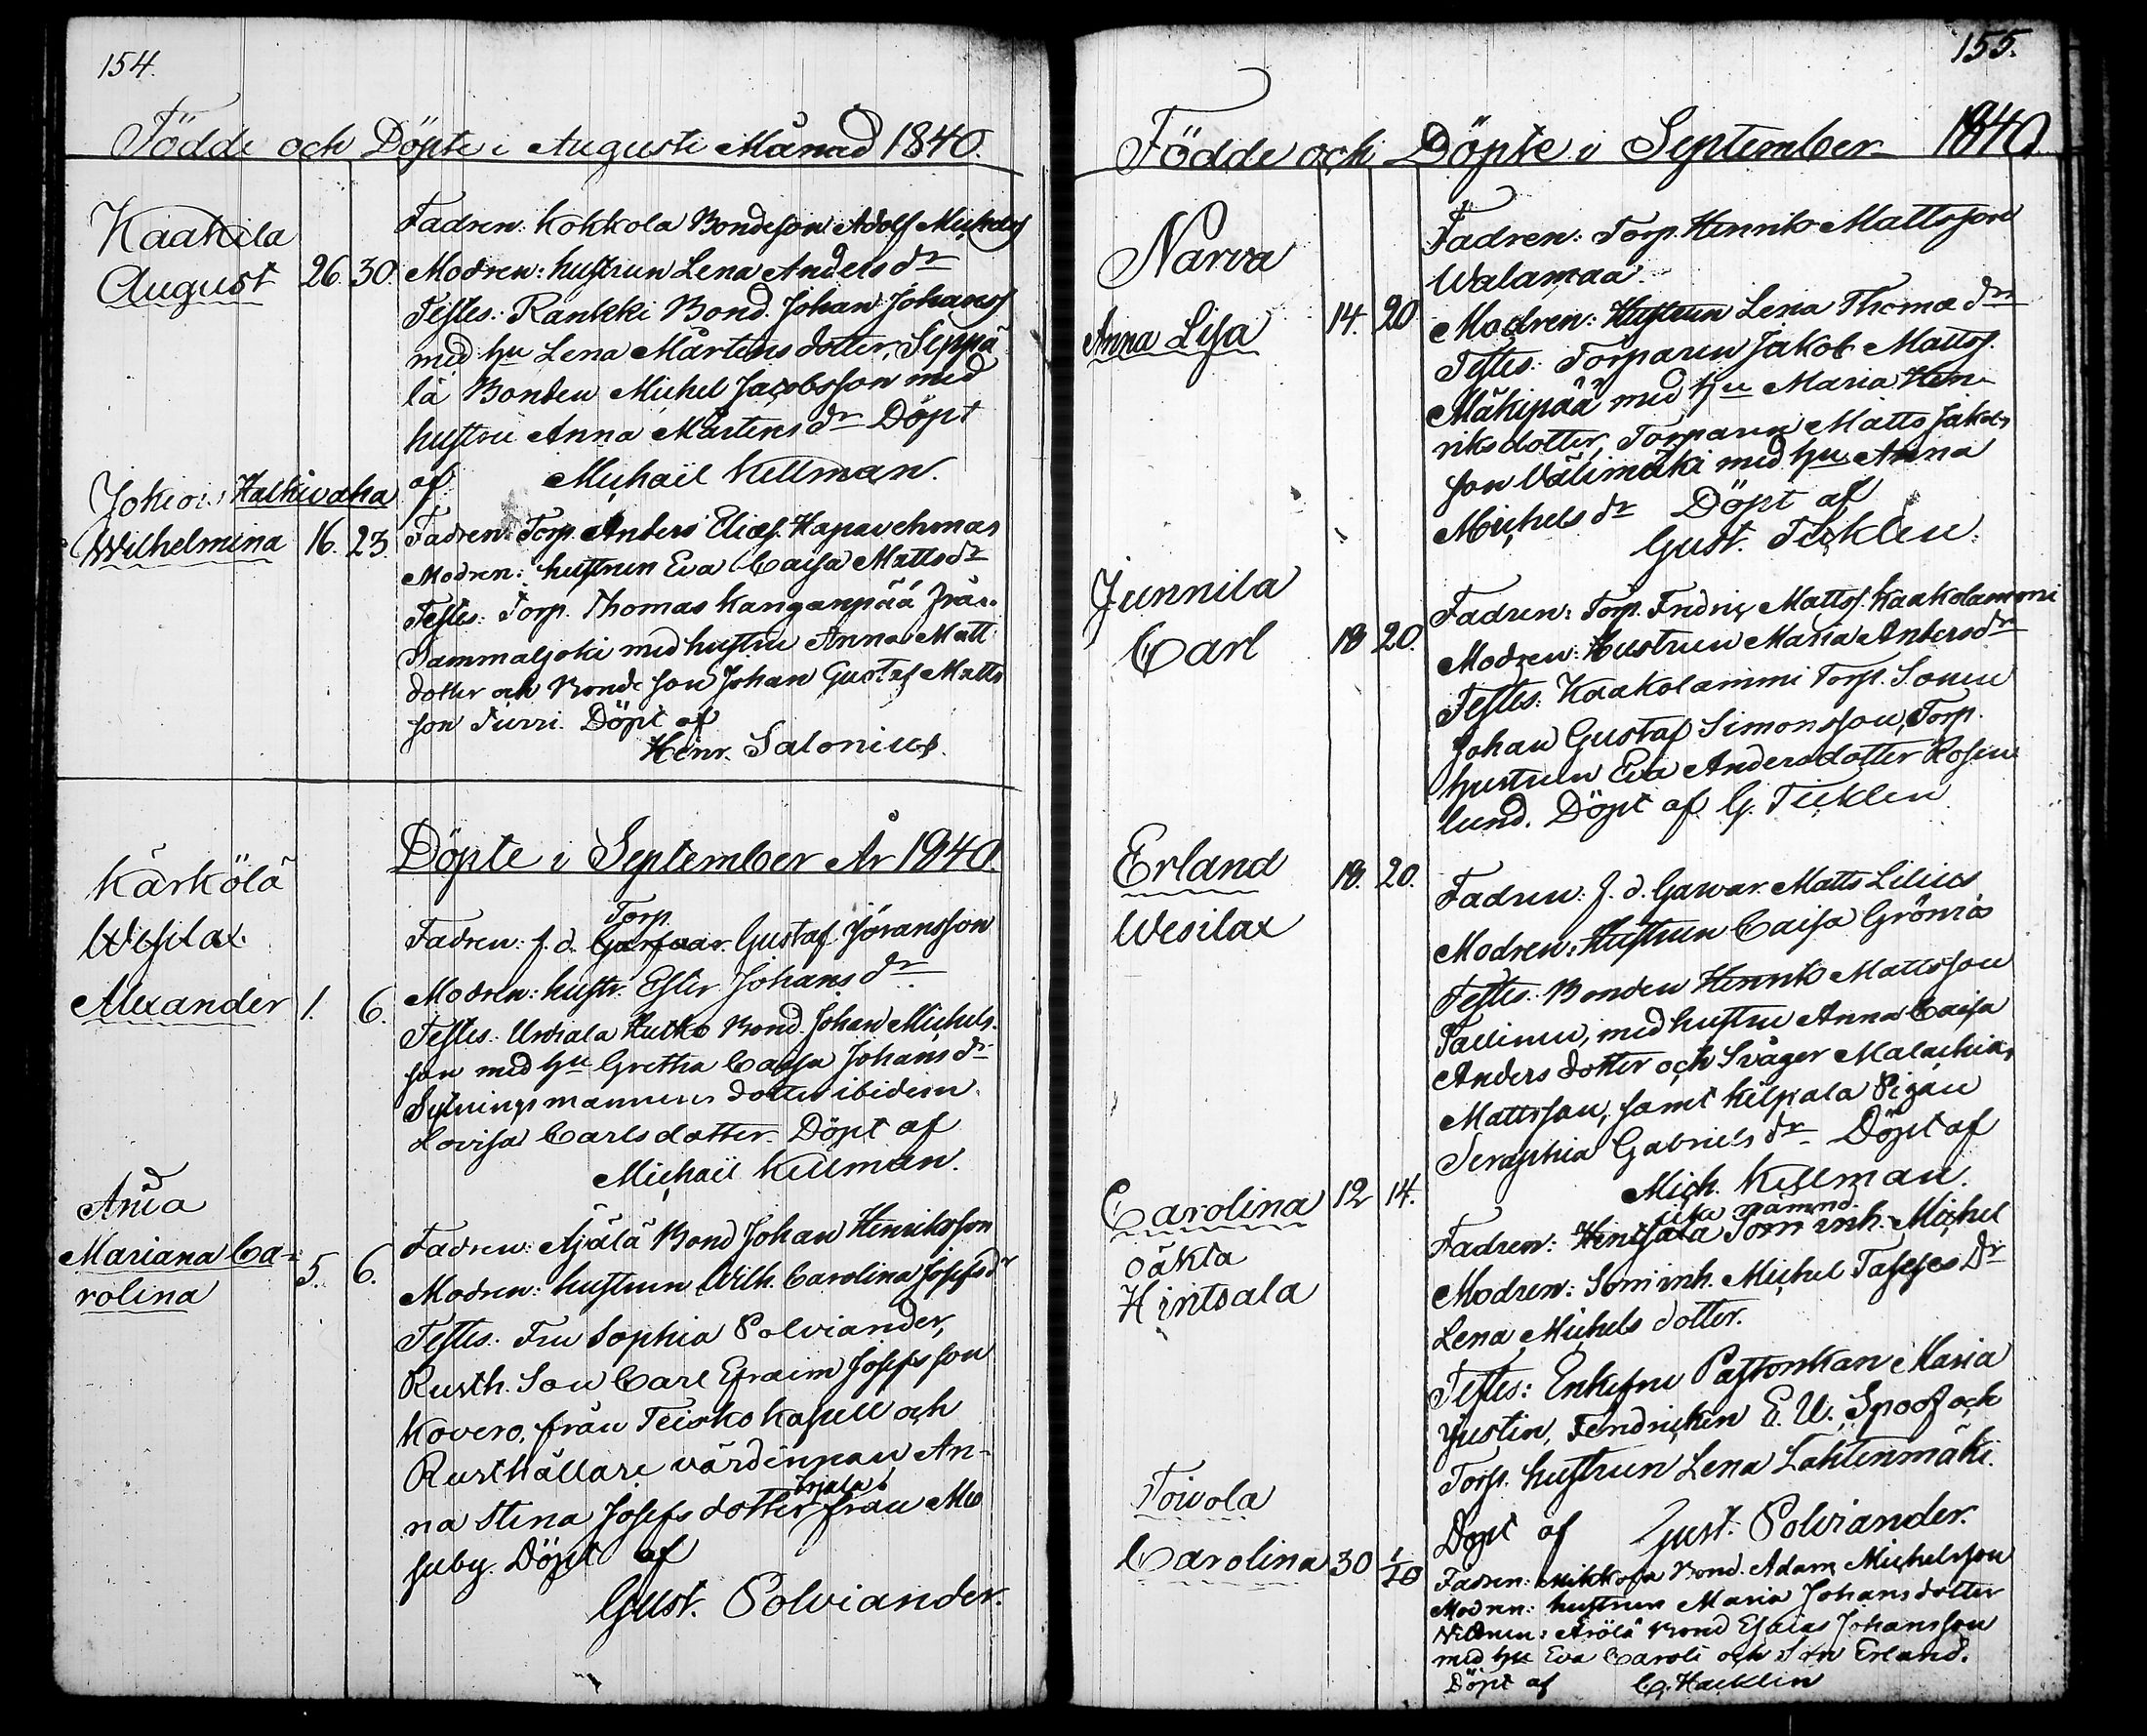 154.
Födde och Döpte i Augusti Månad 1840.
Kaakila
August 26. 30.
Fadren: Kokkola Bondeson Adolf Michelss
Modren: hustrun Lena Anders dr
Testes: Rankki Bond. Johan Johanss
med hu Lena Mårtens dotter, Seppä
lä Bonden Michel Jacobsson med
hustru Anna Mårtens dr Döpt
af Michaël Killman.
Jokiois Halkivaha
Wilhelmina 16. 23.
Fadren: Torp. Anders Eliass. Hapavehmas
Modren: hustrun Eva Caisa Matts dr
Testes: Torp. Thomas Kanganpää från
Sammaljoki med hustru Anna Matts
dotter och Bonde son Johan Gustaf Matts
son Turri. Döpt af
Henr. Salonius.
Döpte i September År 1840.
Kärkölä
Wesilax.
Alexander 1. 6.
Torp.
Fadren: f. d. Gustaf Jöransson
Modren: hustr. Ester Johans dr
Testes: Urdiala Hutko Bond. Johan Michels-
son med hu Gretha Caisa Johans dr
Sytningsmannens dotter ibidem
Lovisa Carlsdotter. Döpt af
Michaël Killman.
Ania
Mariana Ca-
rolina 5. 6.
Fadren: Äjälä Bond Johan Henriksson
Modren: hustrun Wilh. Carolina Josefs dr
Testes: Fru Sophia Polviander,
Rusth. Son Carl Efraim Josefsson
Kovero, från Teisko Kapell och
Rusthållare värdinnan An-
na Stina Josefs dotter från Me
suby. Döpt af
Gust. Polviander.
155.
Födde och Döpte i September 1840
Narva
Anna Lisa 14. 20
Fadren: Torp. Henrik Mattsson
Walamaa.
Modren: Hustrun Lena Thomæ dr
Testes: Torparen Jakob Matts.
Mäkipää med hu Maria Hen-
riksdotter, Torparen Matts Jakobs
son Välimäki med hu Anna
Michels dr Döpt af
Gust. Ticklen.
Junnila
Carl 18 20.
Fadren: Torp. Fredric Mattss. Kaakolammi
Modren: Hustrun Maria Anders dr
Testes: Kaakolammi Torp. Sonen
Johan Gustaf Simonsson, Torp.
hustrun Eva Andersdotter Rosen
lund. Döpt af G. Ticklen
Erland 18. 20.
Wesilax
Fadren: f. d. Gawar. Matts Lilius
Modren: Hustrun Caisa Grönroos
Testes: Bonden Henrik Mattsson
Tallinen, med hustru Anna Caisa
Anders dotter och Svåger Malachias
Mattsson, samt Kilpiala Pigan
Seraphia Gabriels dr Döpt af
Mich. Killman.
Carolina 12 14.
oäkta
Hintsala
Fadren: Hintsala inh. Michel
Modren: inh. Michel dr
Lena Michels dotter.
Testes: Enkefru Pastorskan Maria
Justin, Fendricken E. U. Spoof och
Torp. hustrun Lena Lahtenmäki.
Döpt af Gust. Polviander.
Toivola
Carolina 30 1/10
Fadren: Mikkola Bond. Adam Michelsson
Modren: hustrun Maria Johansdotter
Vittnen: Arölä Bond Esaias Johansson
med hu Eva Caroli och Son Erland.
Döpt af G. Hacklin